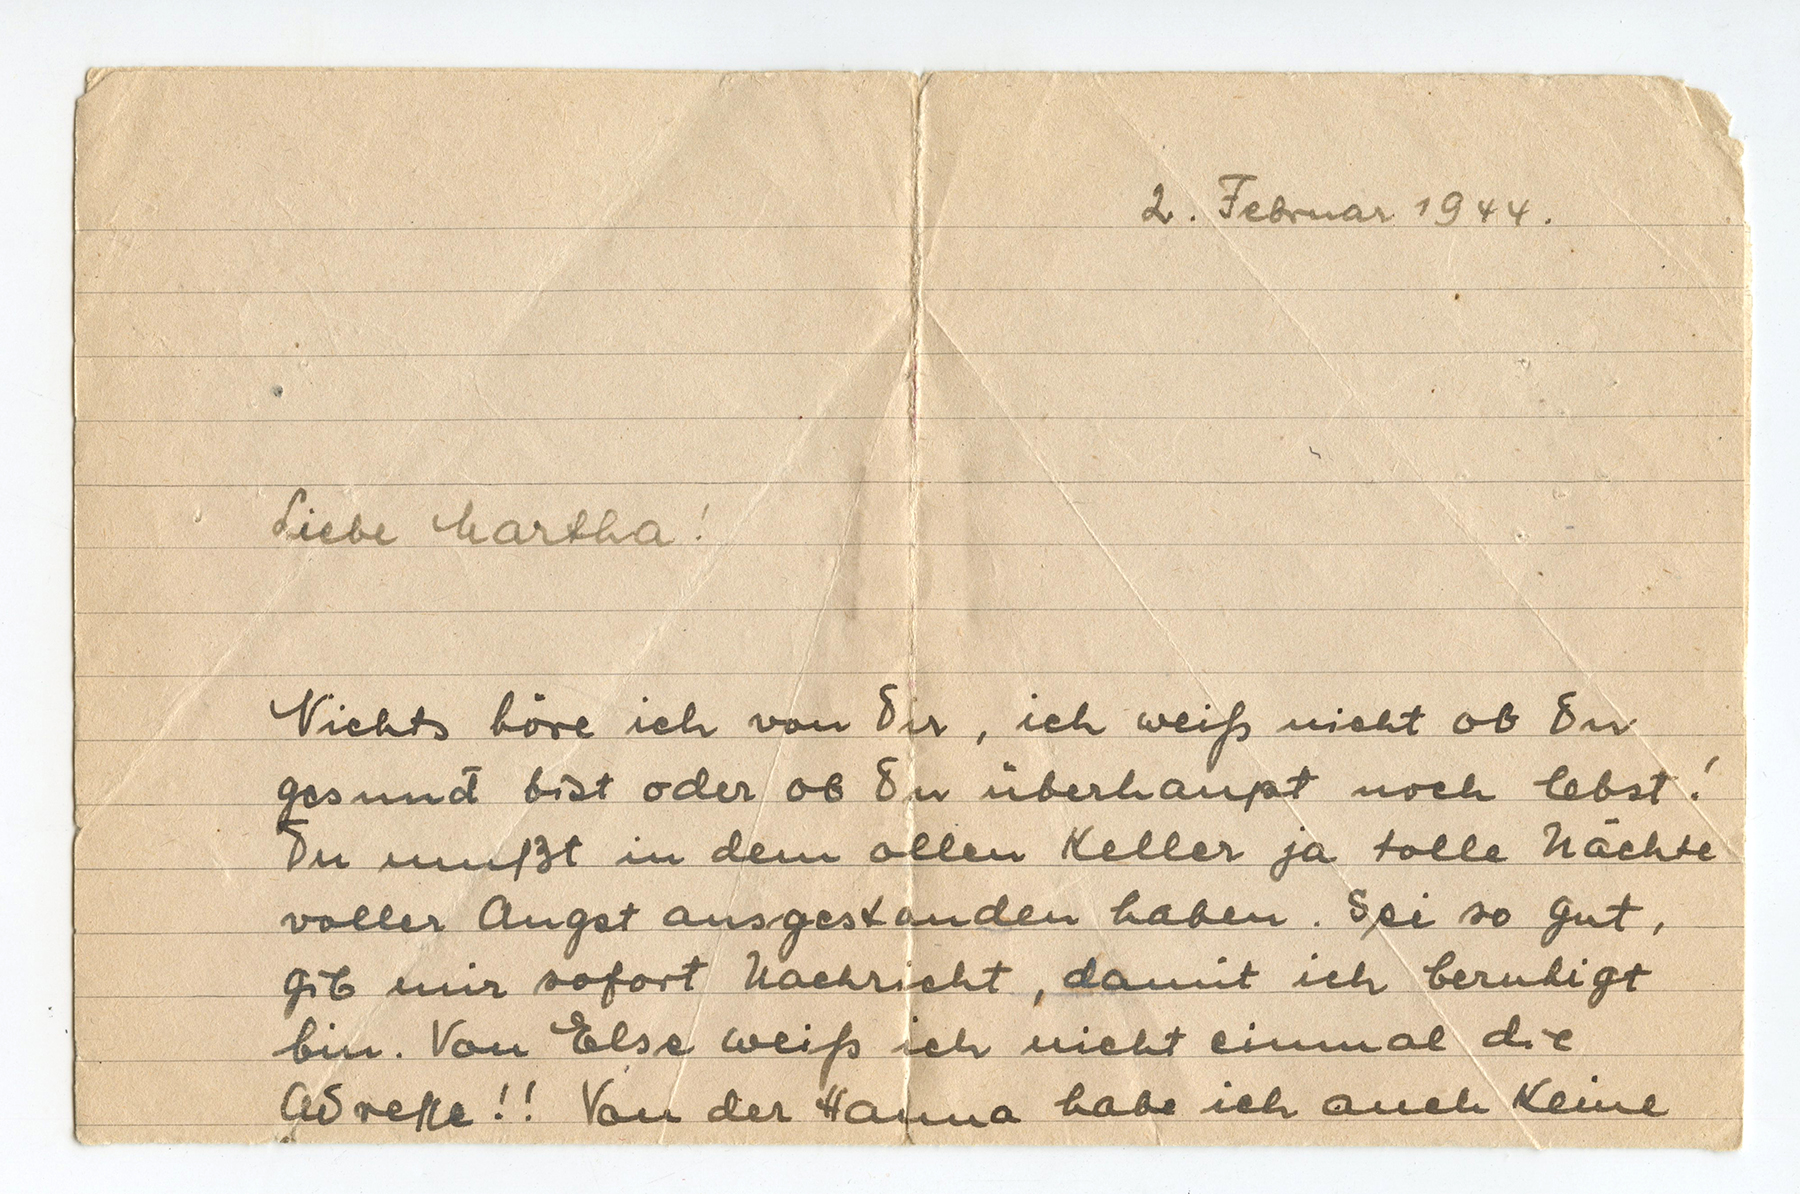 2. Februar 1944.
Liebe Martha!
Nichts höre ich von Dir, ich weiß nicht ob Du
gesund bist oder ob Du überhaupt noch lebst!
Du mußt in dem ollen Keller ja tolle Nächte
voller Angst ausgestanden haben. Sei so gut,
gib mir sofort Nachricht, damit ich beruhigt
bin. Von Else weiß ich nicht einmal die
Adresse!! Von der Hanna habe ich auch keine